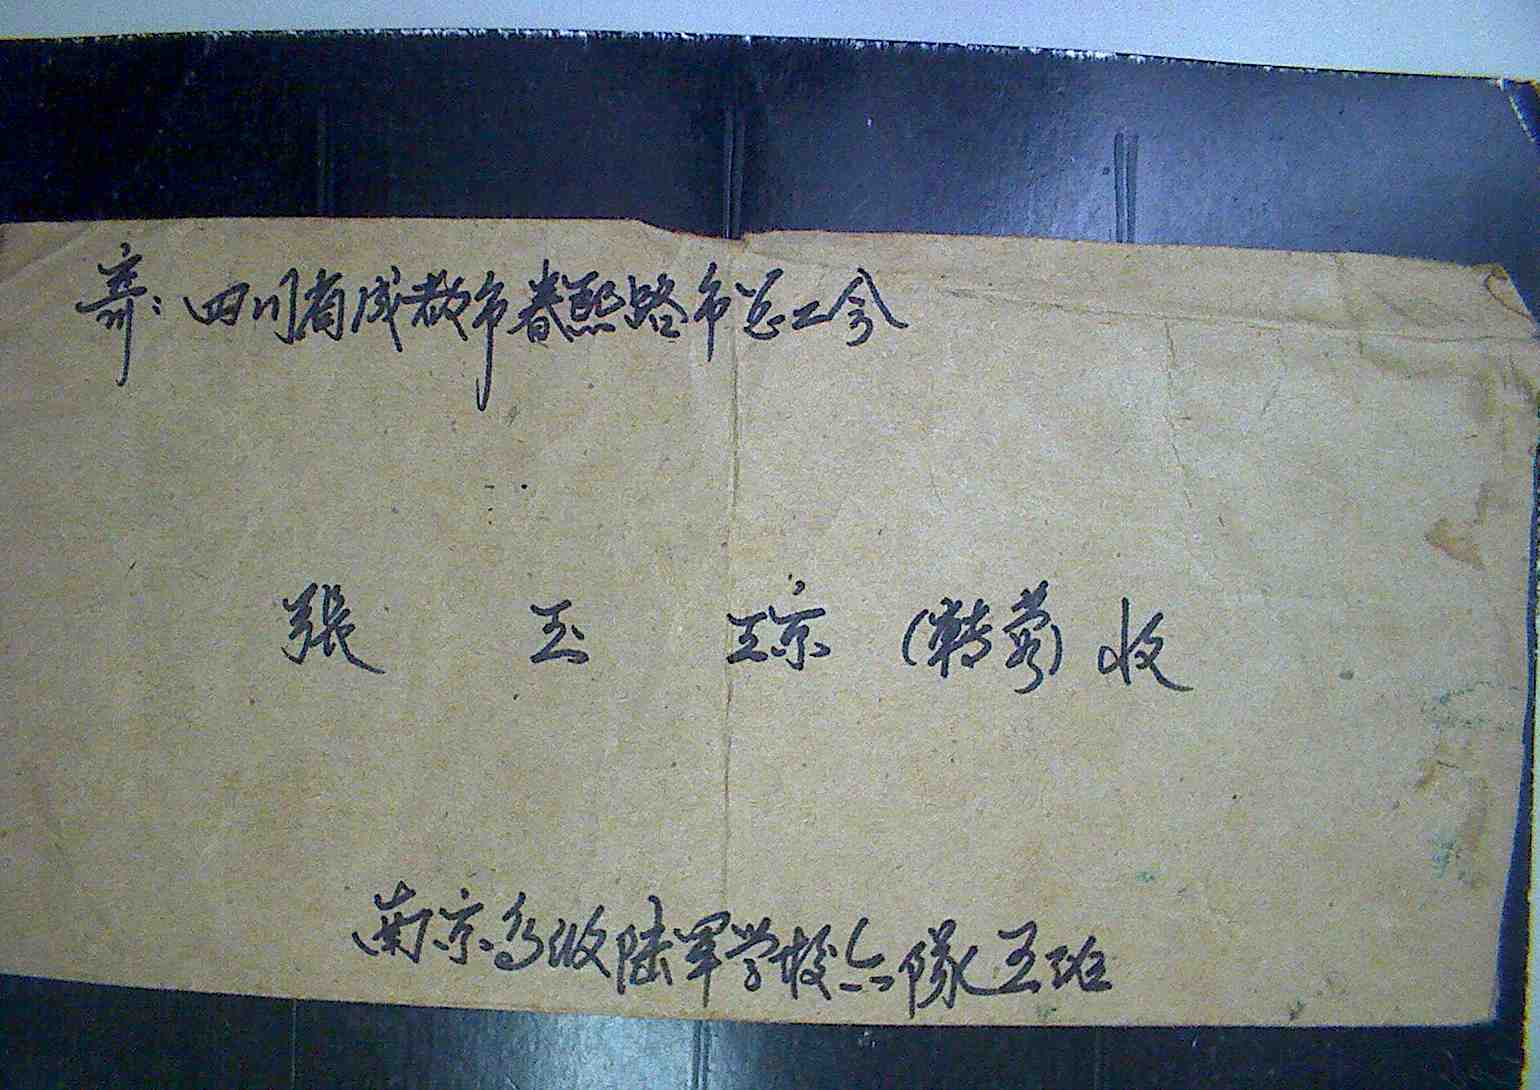 寄：四川省成都市春熙路市总工会
張玉琼（转蓉）收
南京高级陆军学校六隊五班